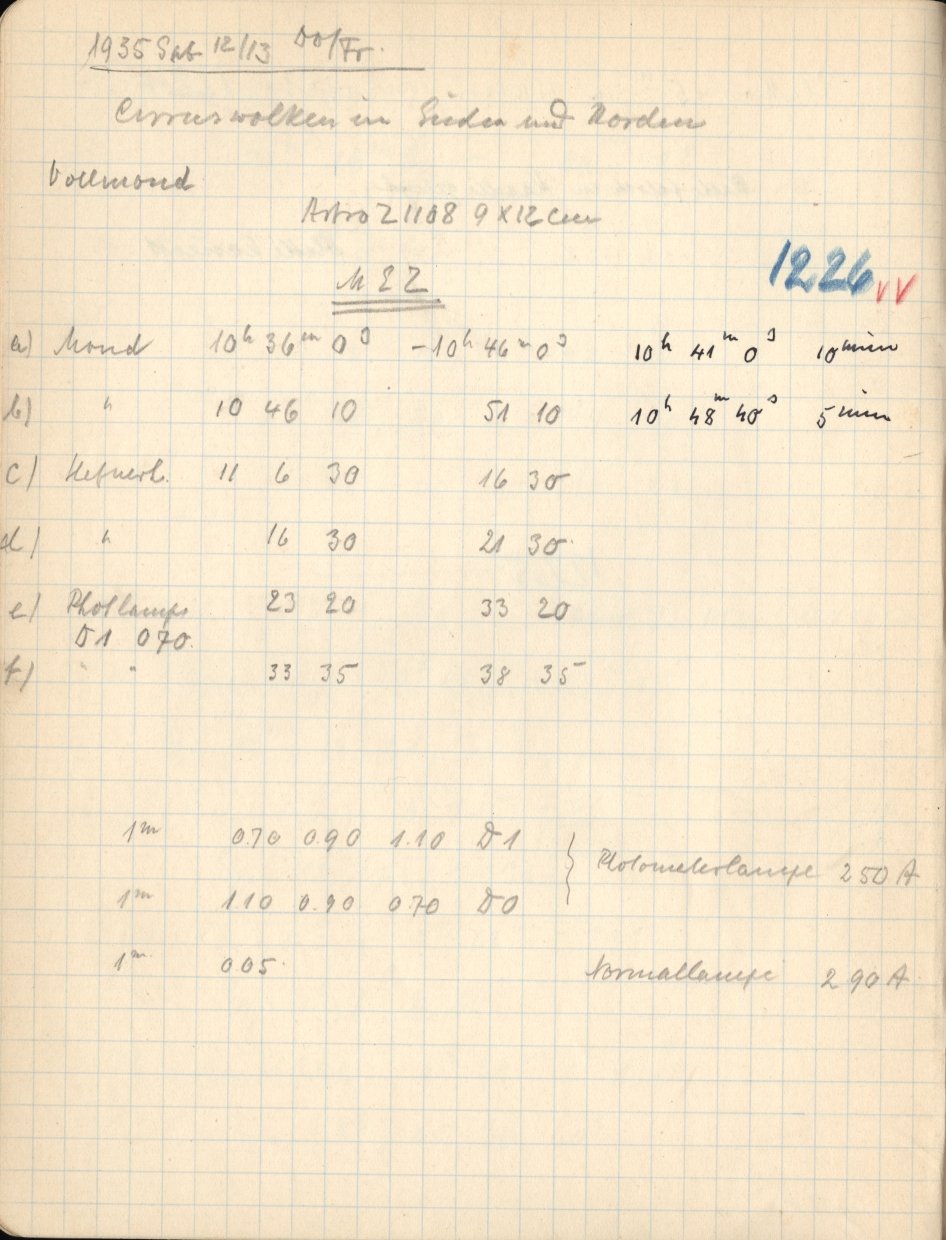 1935 Sept 12/13 Do/Fr.
Cirruswolken im Süden und Norden
Vollmond
Astro Z 1108 9 x 12 cm
1226 VV
MEZ
a) Mond 10h 36m 0s - 10h 46m 0s 10h 41m 0s 10 min
b) " 10 46 10 51 10 10h 48m 40s 5 min
c) Hefnerl. 11 6 30 16 30
d) " 16 30 21 30
e) Photlampe 23 20 33 20
D1 070.
f) " " 33 35 38 35
1m 0.70 0.90 1.10 D1
} Photometerlampe 250 A
1m 1.10 0.90 0.70 D0
1m 0.05. Normallampe 290 A